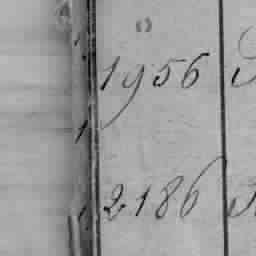 1956
2186